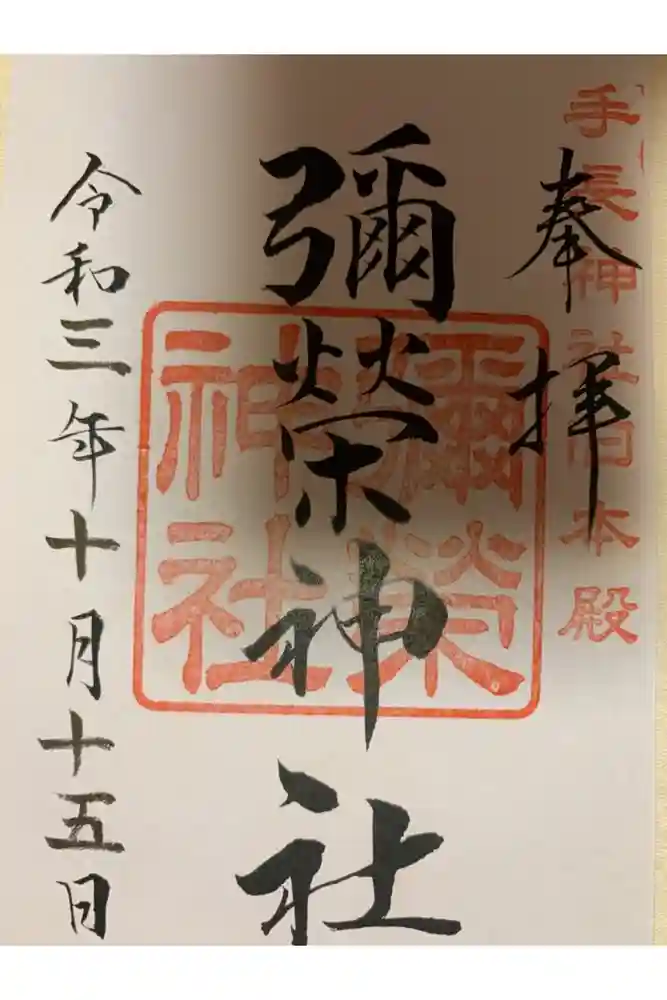 奉拝
手長神社旧本殿
彌榮神社
彌榮
神社
令和三年十月十五日